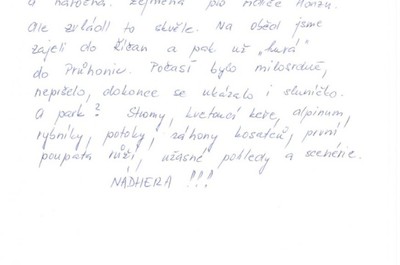 a natočná. Zejména pro řidiče Honzu.
Ale zvládl to skvěle. Na oběd jsme
zajeli do Říčan a pak už „hurá"
do Průhonic. Počasí bylo milosrdné,
nepršelo, dokonce se ukázalo i sluníčko.
A park? Stromy, kvetoucí keře, alpinum,
rybníky, potoky, záhony kosatců, první
poupata růží, úžasné pohledy a scenérie.
NÁDHERA !!!